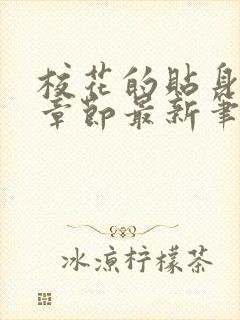 校花的贴身
章节最新笔
冰凉柠檬茶